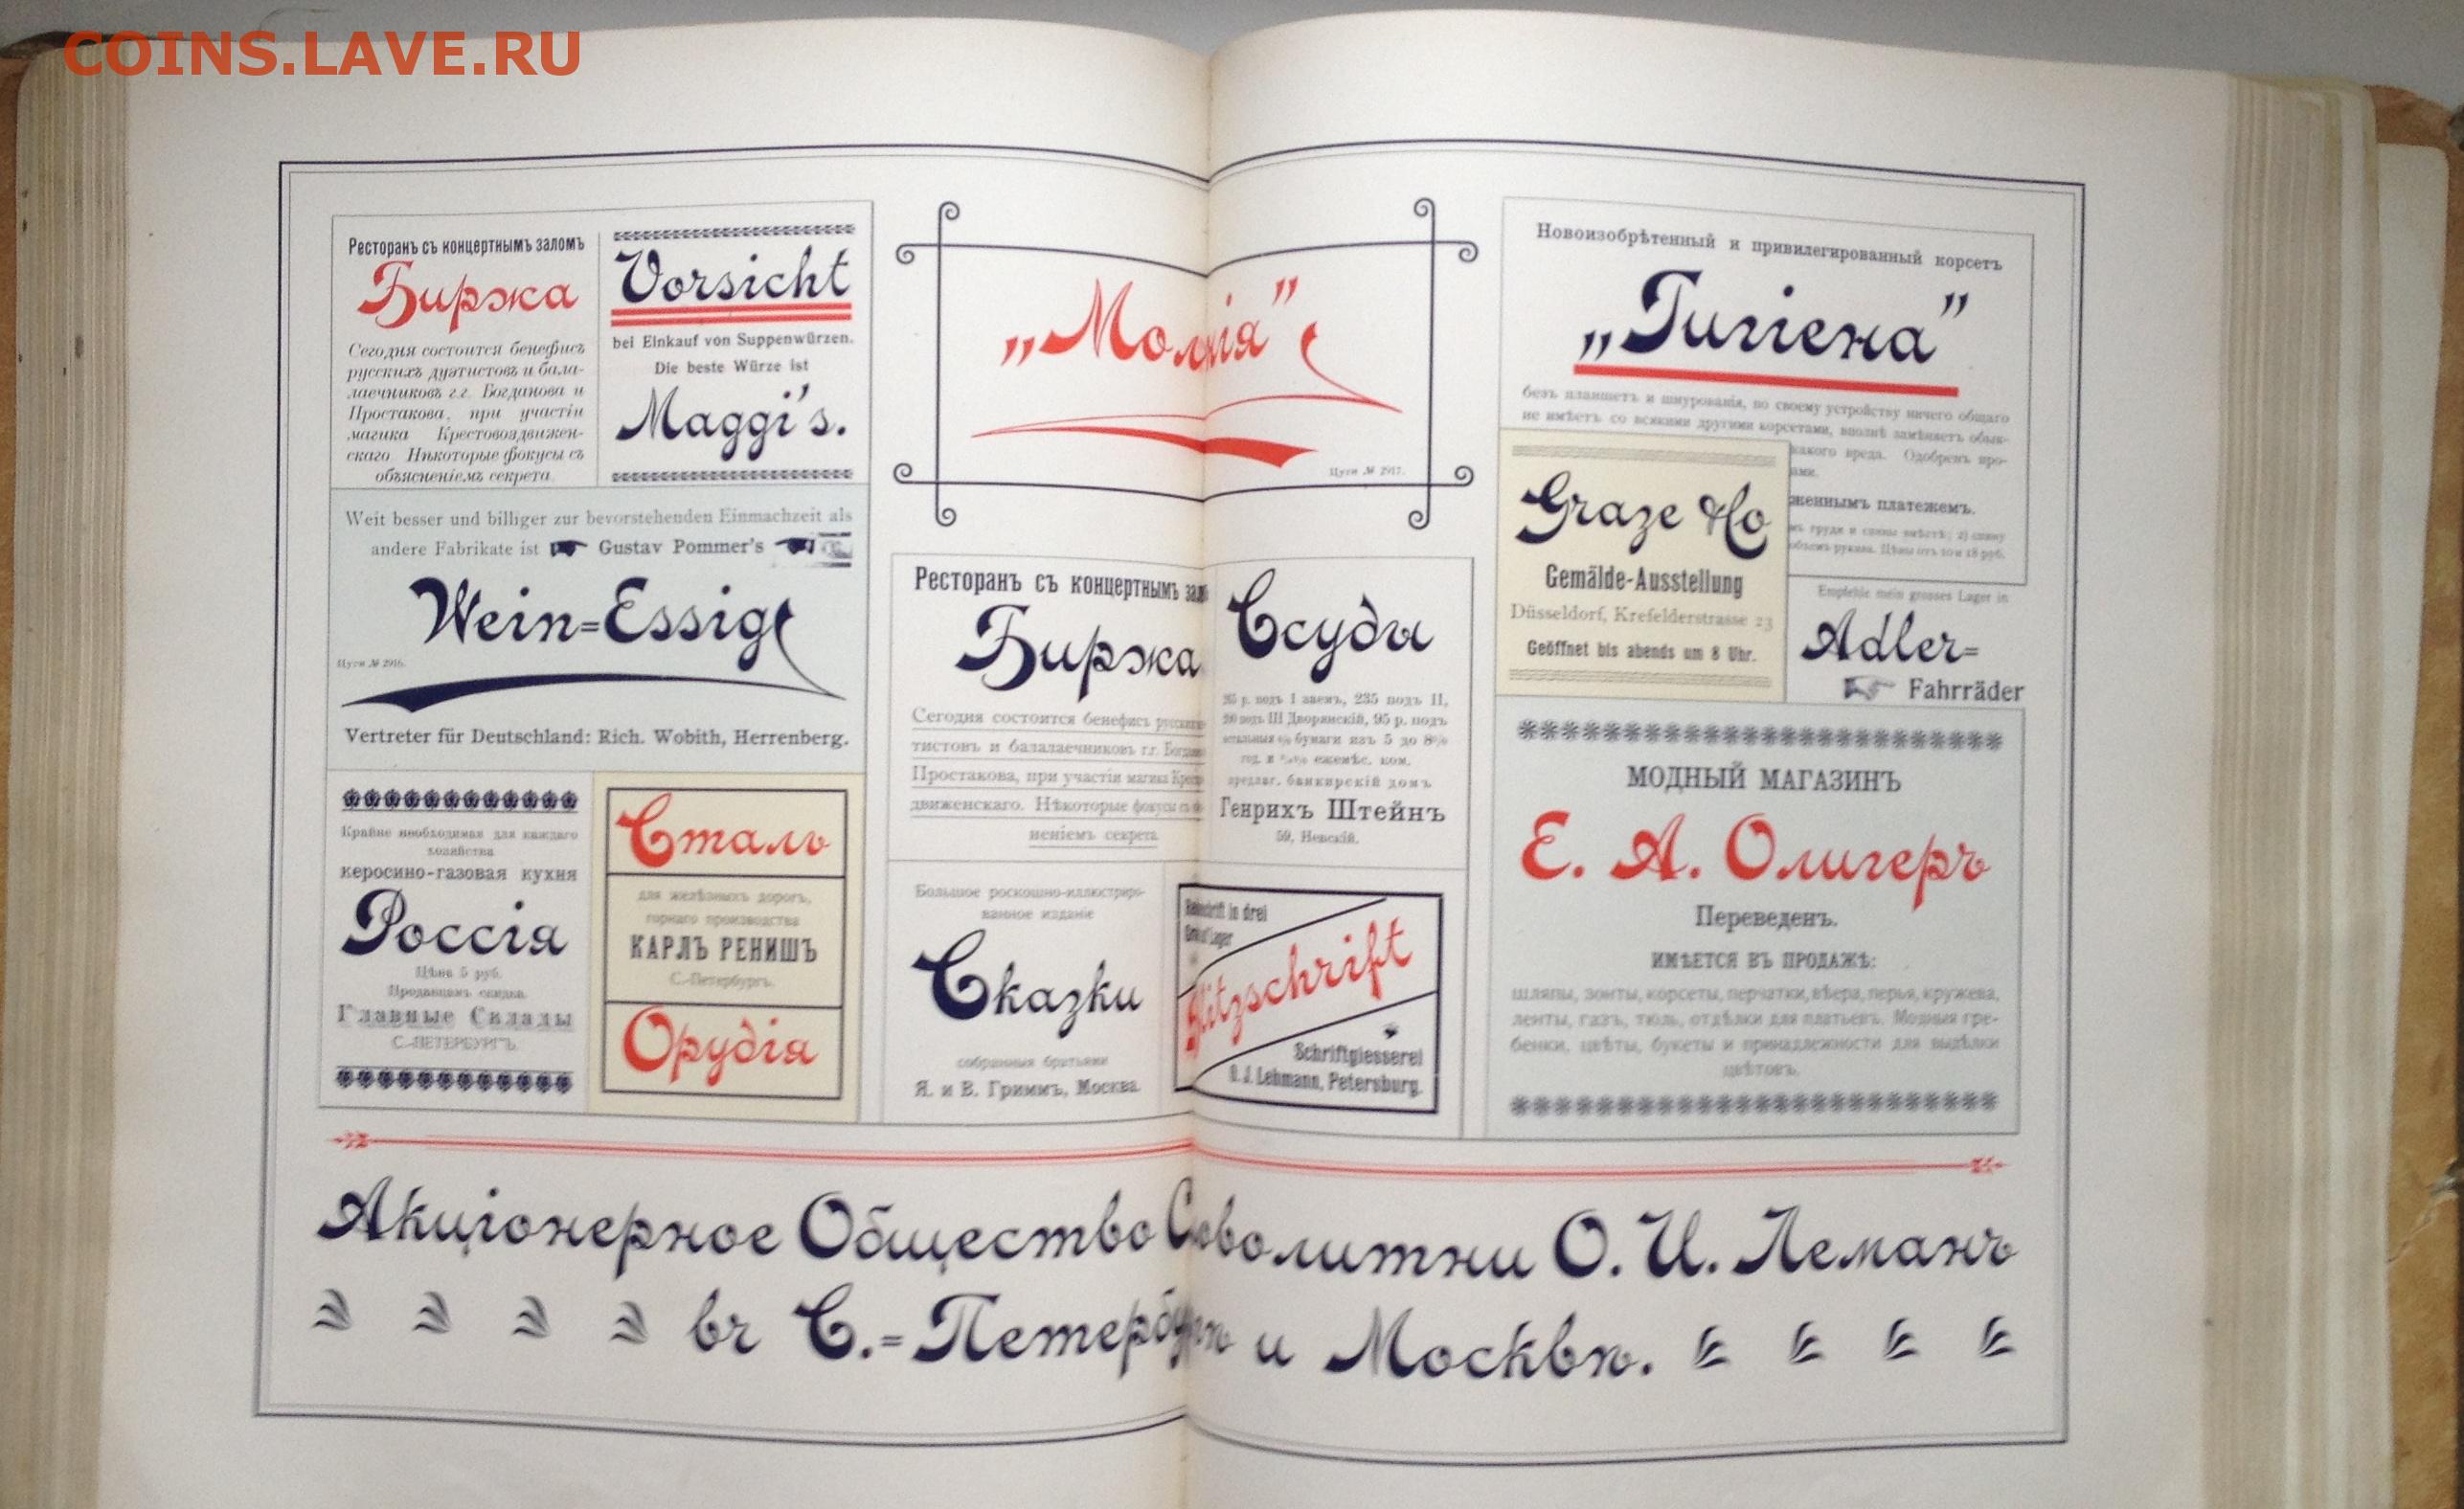 COINS.LAVE.RU
Ресторанъ съ концертнымъ заломъ
Биржа
Сегодня состоится бенефисъ
русскихъ дуэтистовъ и бала-
лаечниковъ г.г. Богданова и
Простакова, при участіи
магика Крестовоздвижен-
скаго. Нѣкоторые фокусы съ
объясненіемъ секрета.
Vorsicht
bei Einkauf von Suppenwürzen.
Die beste Würze ist
Maggi's.
Weit besser und billiger zur bevorstehenden Einmachzeit als
andere Fabrikate ist Gustav Pommer's
Wein=Essig
Цуги № 2916.
Vertreter für Deutschland: Rich. Wobith, Herrenberg.
Крайне необходимая для каждаго
хозяйства
керосино-газовая кухня
Россія
Цѣна 5 руб.
Продавцамъ скидка.
Главные Склады
С.-ПЕТЕРБУРГЪ.
Сталь
для желѣзныхъ дорогъ,
горнаго производства
КАРЛЪ РЕНИШЪ
С.-Петербургъ.
Орудія
„Молнія”
Цуги № 2917.
Ресторанъ съ концертнымъ
Биржа
Сегодня состоится бенефисъ
тистовъ и балалаечниковъ г.г.
Простакова, при участіи магика
движенскаго. Нѣкоторые фокусы
неніемъ секрета
Ссуды
подъ 1 заемъ, 235 подъ II,
подъ III Дворянскій, 95 р. подъ
бумаги изъ 5 до 8%
год. и ежемѣс. ком.
предлаг. банкирскій домъ
Генрихъ Штейнъ
59, Невскій.
Большое роскошно-иллюстриро-
ванное изданіе
Сказки
собранныя братьями
Я. и В. Гриммъ, Москва.
in drei
Lager
Blitzschrift
Schriftgiesserei
O. J. Lehmann, Petersburg.
Новоизобрѣтенный и привилегированный корсетъ
„Гигіена”
безъ планшетъ и шнурованія, по своему устройству ничего общаго
не имѣетъ со всякими другими корсетами, вполнѣ замѣняетъ обык-
какого вреда. Одобренъ про-
ами.
женнымъ платежемъ.
груди и спины вмѣстѣ; 2) спину
объемъ рукава. Цѣны отъ 10 и 18 руб.
Graze & Co
Gemälde-Ausstellung
Düsseldorf, Krefelderstrasse 23
Geöffnet bis abends um 8 Uhr.
Empfehle mein grosses Lager in
Adler=
Fahrräder
МОДНЫЙ МАГАЗИНЪ
Е. А. Олигеръ
Переведенъ.
ИМѢЕТСЯ ВЪ ПРОДАЖѢ:
шляпы, зонты, корсеты, перчатки, вѣера, перья, кружева,
ленты, газъ, тюль, отдѣлки для платьевъ. Модныя гре-
бенки, цвѣты, букеты и принадлежности для выдѣлки
цвѣтовъ.
Акціонерное Общество Словолитни О. И. Леманъ
въ С.=Петербургѣ и Москвѣ.